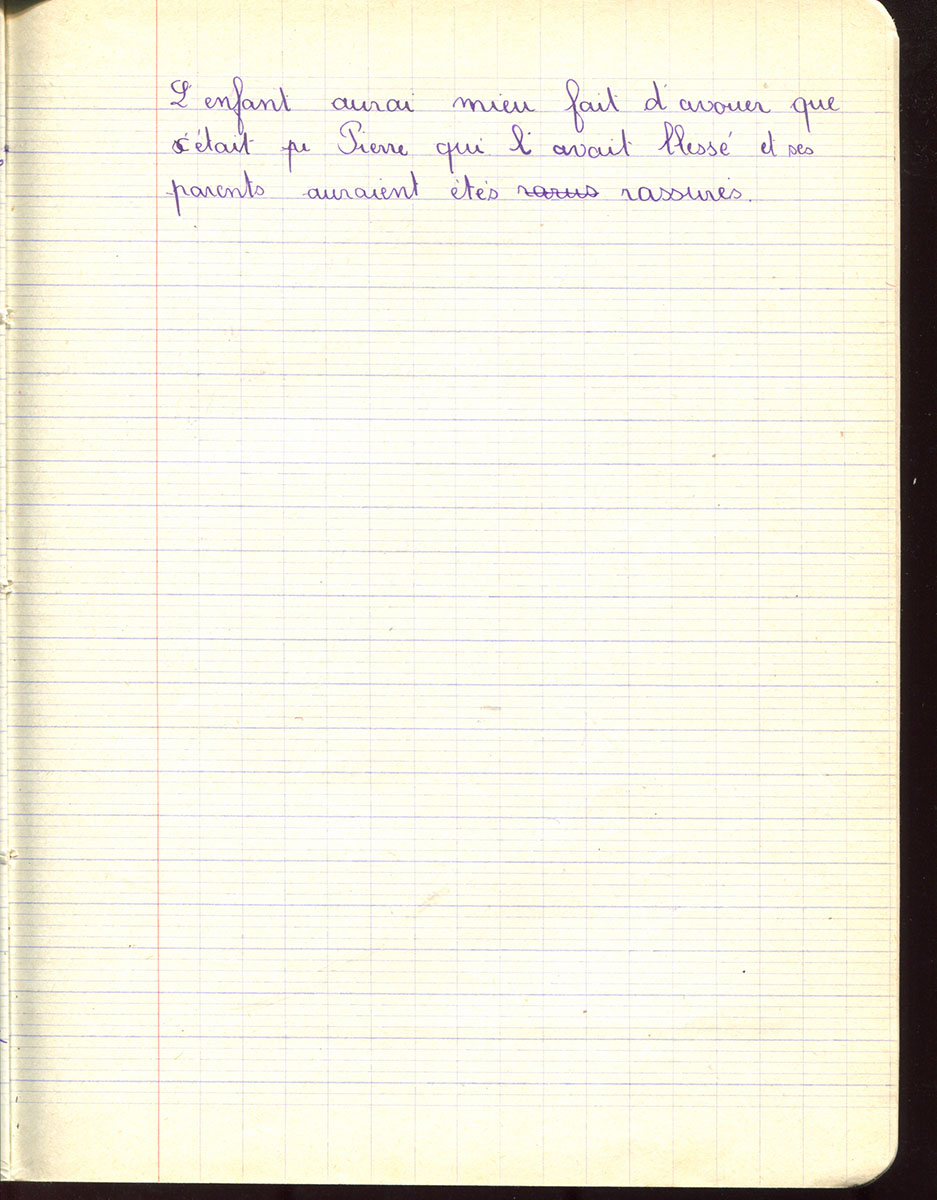 L'enfant aurai mieu fait d'avouer que
c'était pe Pierre qui l'avait blessé et ses
parents auraient étés rassurés.